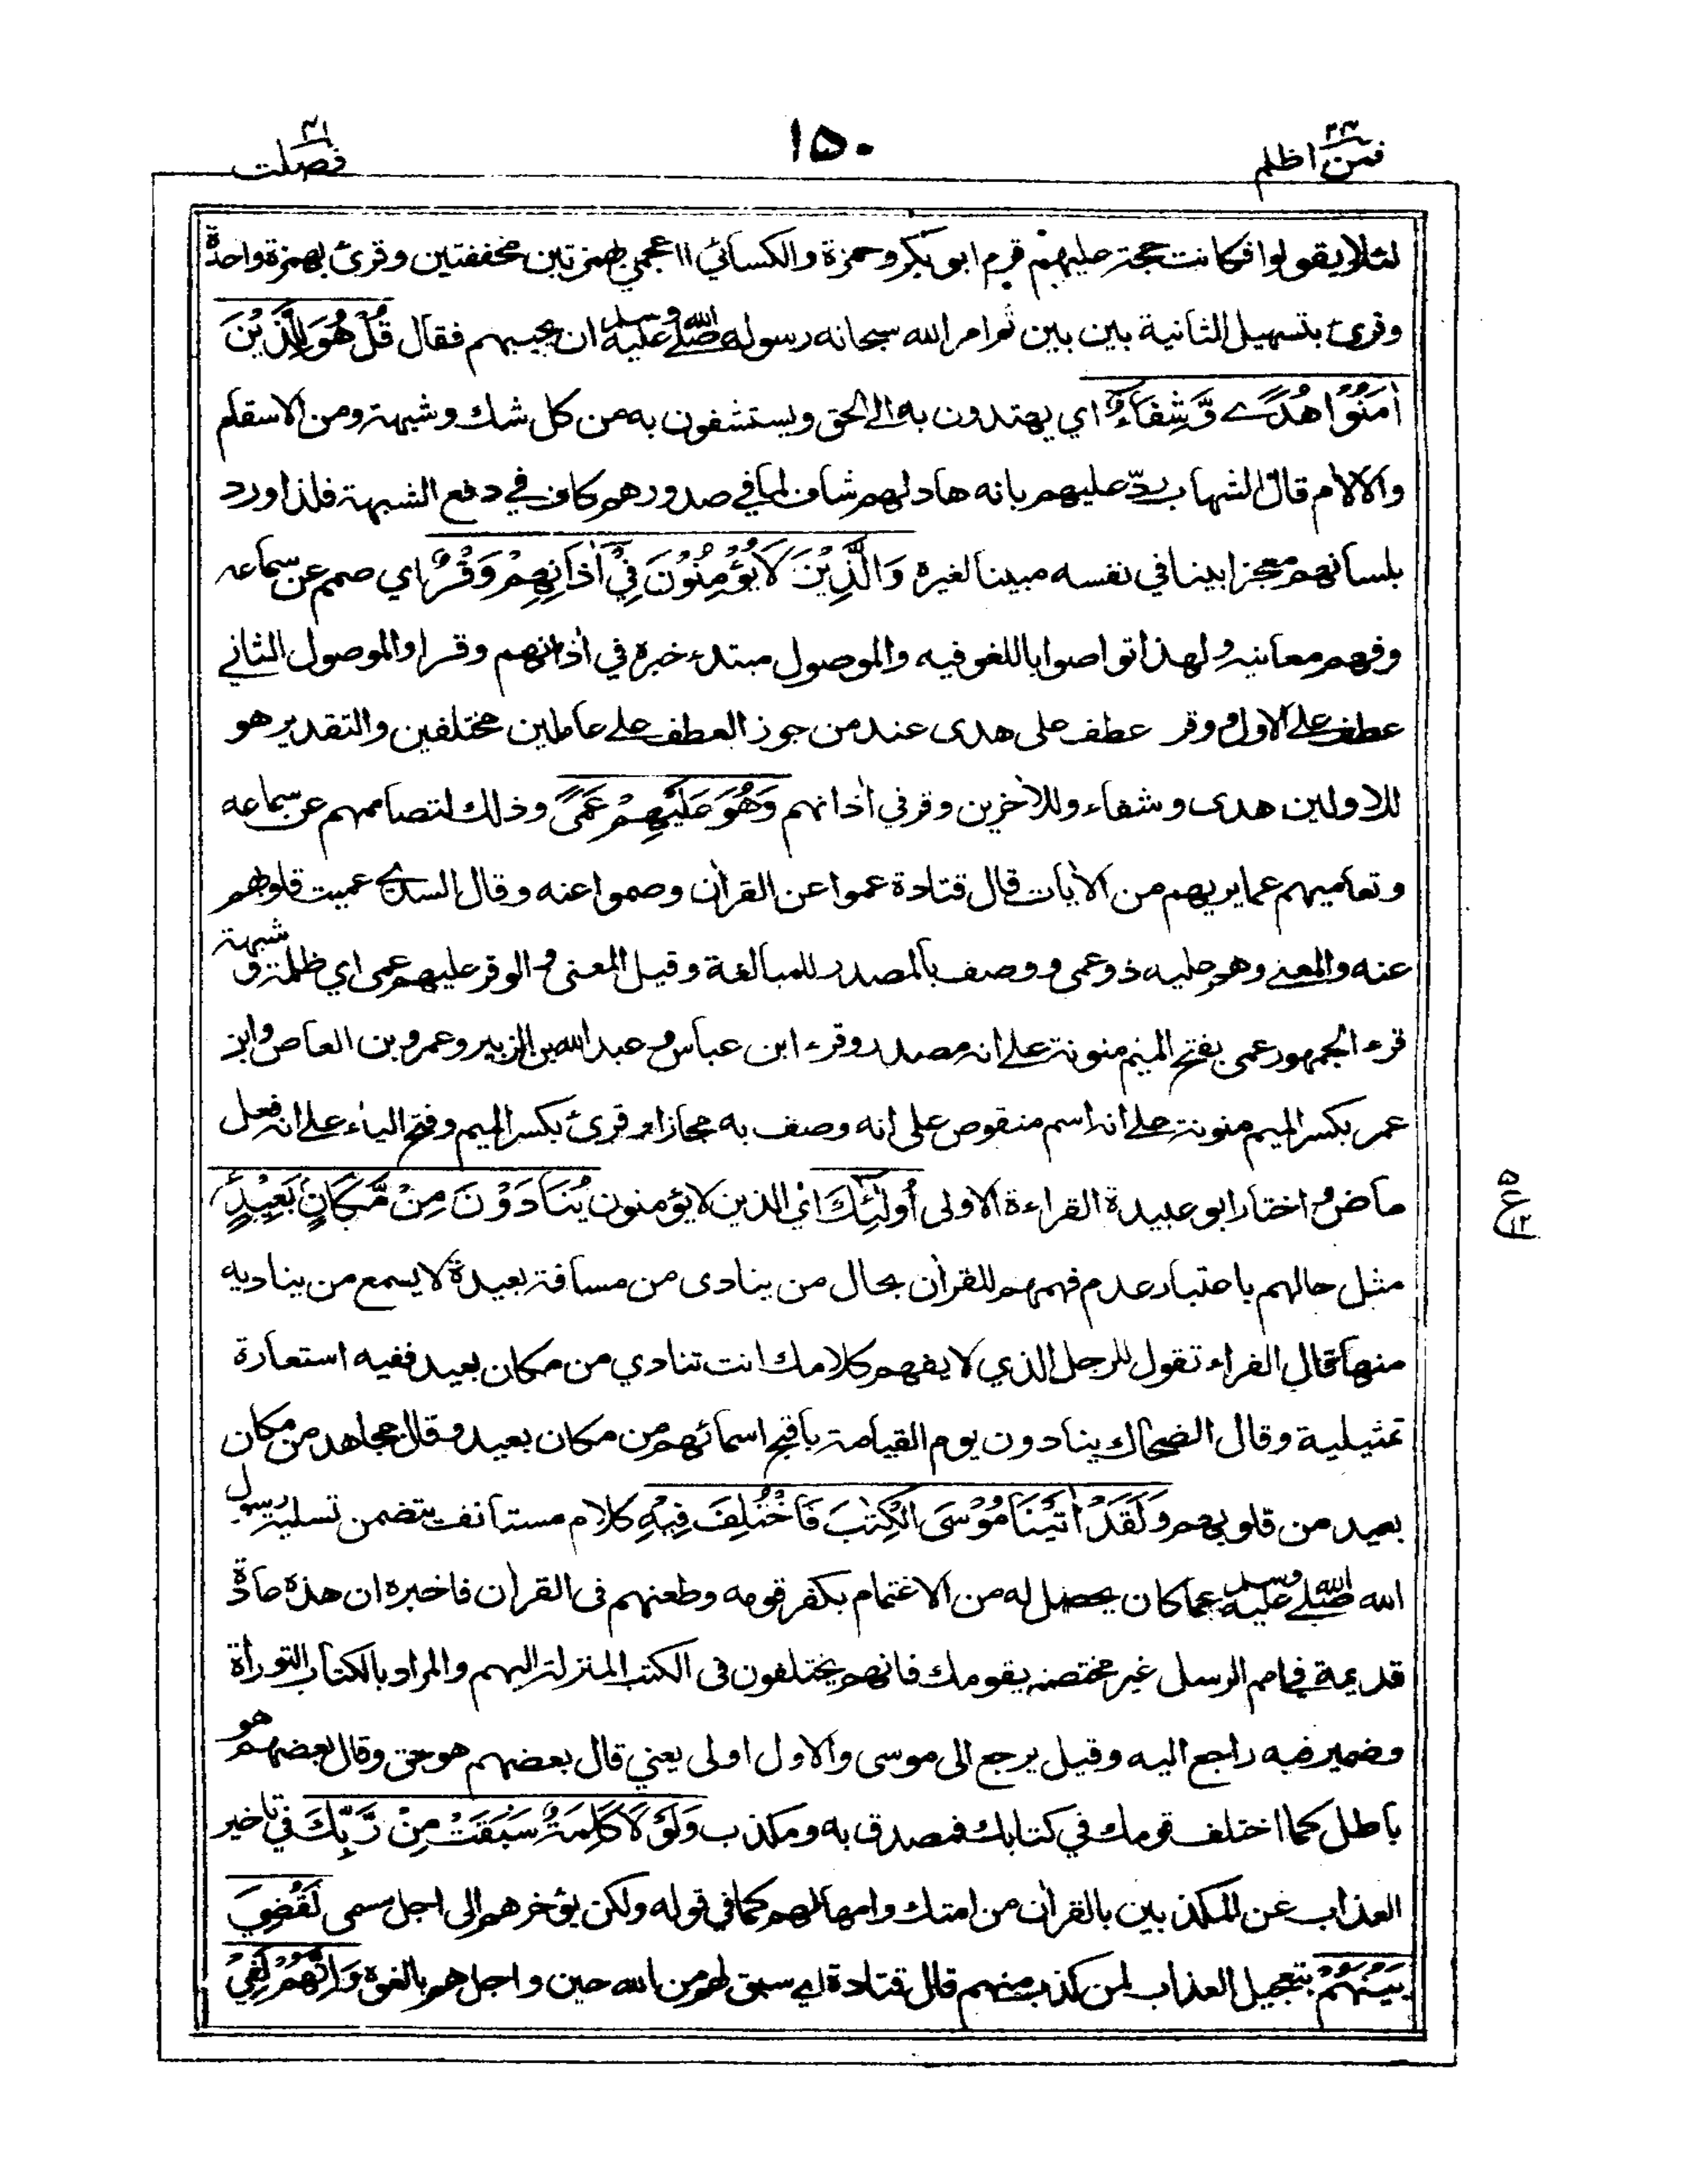 فمن اظلم ٢٤
١٥٠
فصلت ٤١
لئلا يقولوا فكانت حجة عليهم قرء ابو بكر وحمزة والكسائي ااعجمي بهمزتين مخففتين وقرئ بهمزة واحدة
وقرئ بتسهيل الثانية بين بين ثم امر الله سبحانه رسوله صلى الله عليه وسلم ان يجيبهم فقال قُلْ هُوَ لِلَّذِيْنَ
اٰمَنُوْا هُدًى وَّشِفَآءٌ اي يهتدون به الى الحق ويستشفون به من كل شك وشبهة ومن الاسقام
والالام قال الشهاب ردّ عليهم بانه هاد لهم شاف لما في صدورهم كاف في دفع الشبهة فلذا ورد
بلسانهم معجزا بينا في نفسه مبينا لغيره وَالَّذِيْنَ لَا يُؤْمِنُوْنَ فِيْ اٰذَانِهِمْ وَقْرٌ اي صمم عن سماعه
وفهم معانيه ولهذا تواصوا باللغو فيه والموصول مبتدء خبره في اذانهم وقر او الموصول الثاني
عطف على الاول ووقر عطف على هدى عند من جوز العطف على عاملين مختلفين والتقدير هو
للاولين هدى وشفاء وللاخرين وقر في اذانهم وَهُوَ عَلَيْهِمْ عَمًى وذلك لتصاممهم عن سماعه
وتعاميهم عما يريهم من الايات قال قتادة عموا عن القراٰن وصموا عنه وقال السدي عميت قلوبهم
عنه والمعنى وهو عليه ذو عمى ووصف بالمصدر للمبالغة وقيل المعنى والوقر عليهم عمى اي ظلمة وشبهة
قرء الجمهور عمى بفتح الميم منونة على انه مصدر وقرء ابن عباس وعبد الله بن الزبير وعمرو بن العاص وابن
عمر بكسر الميم منونة على انه اسم منقوص على انه وصف به مجازا وقرئ بكسر الميم وفتح الياء على انه فعل
ماض واختار ابو عبيدة القراءة الاولى اُولٰٓئِكَ اي الذين لا يؤمنون يُنَادَوْنَ مِنْ مَّكَانٍ بَعِيْدٍ
مثل حالهم باعتبار عدم فهمهم للقراٰن بحال من ينادى من مسافة بعيدة لا يسمع من يناديه
منها قال الفراء تقول للرجل الذي لا يفهم كلامك انت تنادي من مكان بعيد ففيه استعارة
تمثيلية وقال الضحاك ينادون يوم القيامة باقبح اسمائهم من مكان بعيد وقال مجاهد من مكان
بعيد من قلوبهم وَلَقَدْ اٰتَيْنَا مُوْسَى الْكِتٰبَ فَاخْتُلِفَ فِيْهِ كلام مستانف يتضمن تسلية رسول
الله صلى الله عليه وسلم عما كان يحصل له من الاغتمام بكفر قومه وطعنهم فى القران فاخبره ان هذه عادة
قديمة في امم الرسل غير مختصة بقومك فانهم يختلفون فى الكتب المنزلة اليهم والمراد بالكتاب التوراة
وضمير فيه راجع اليه وقيل يرجع الى موسى والاول اولى يعني قال بعضهم هو حق وقال بعضهم هو
باطل كما اختلف قومك في كتابك فمصدق به ومكذب وَلَوْلَا كَلِمَةٌ سَبَقَتْ مِنْ رَّبِّكَ في تاخير
العذاب عن المكذبين بالقراٰن من امتك وامهالهم كما في قوله ولكن يؤخرهم الى اجل مسمى لَقُضِيَ
بَيْنَهُمْ بتعجيل العذاب لمن كذب منهم قال قتادة اي سبق لهم من الله حين واجل هم بالغوه وَاِنَّهُمْ لَفِيْ
٥
ع
١٢